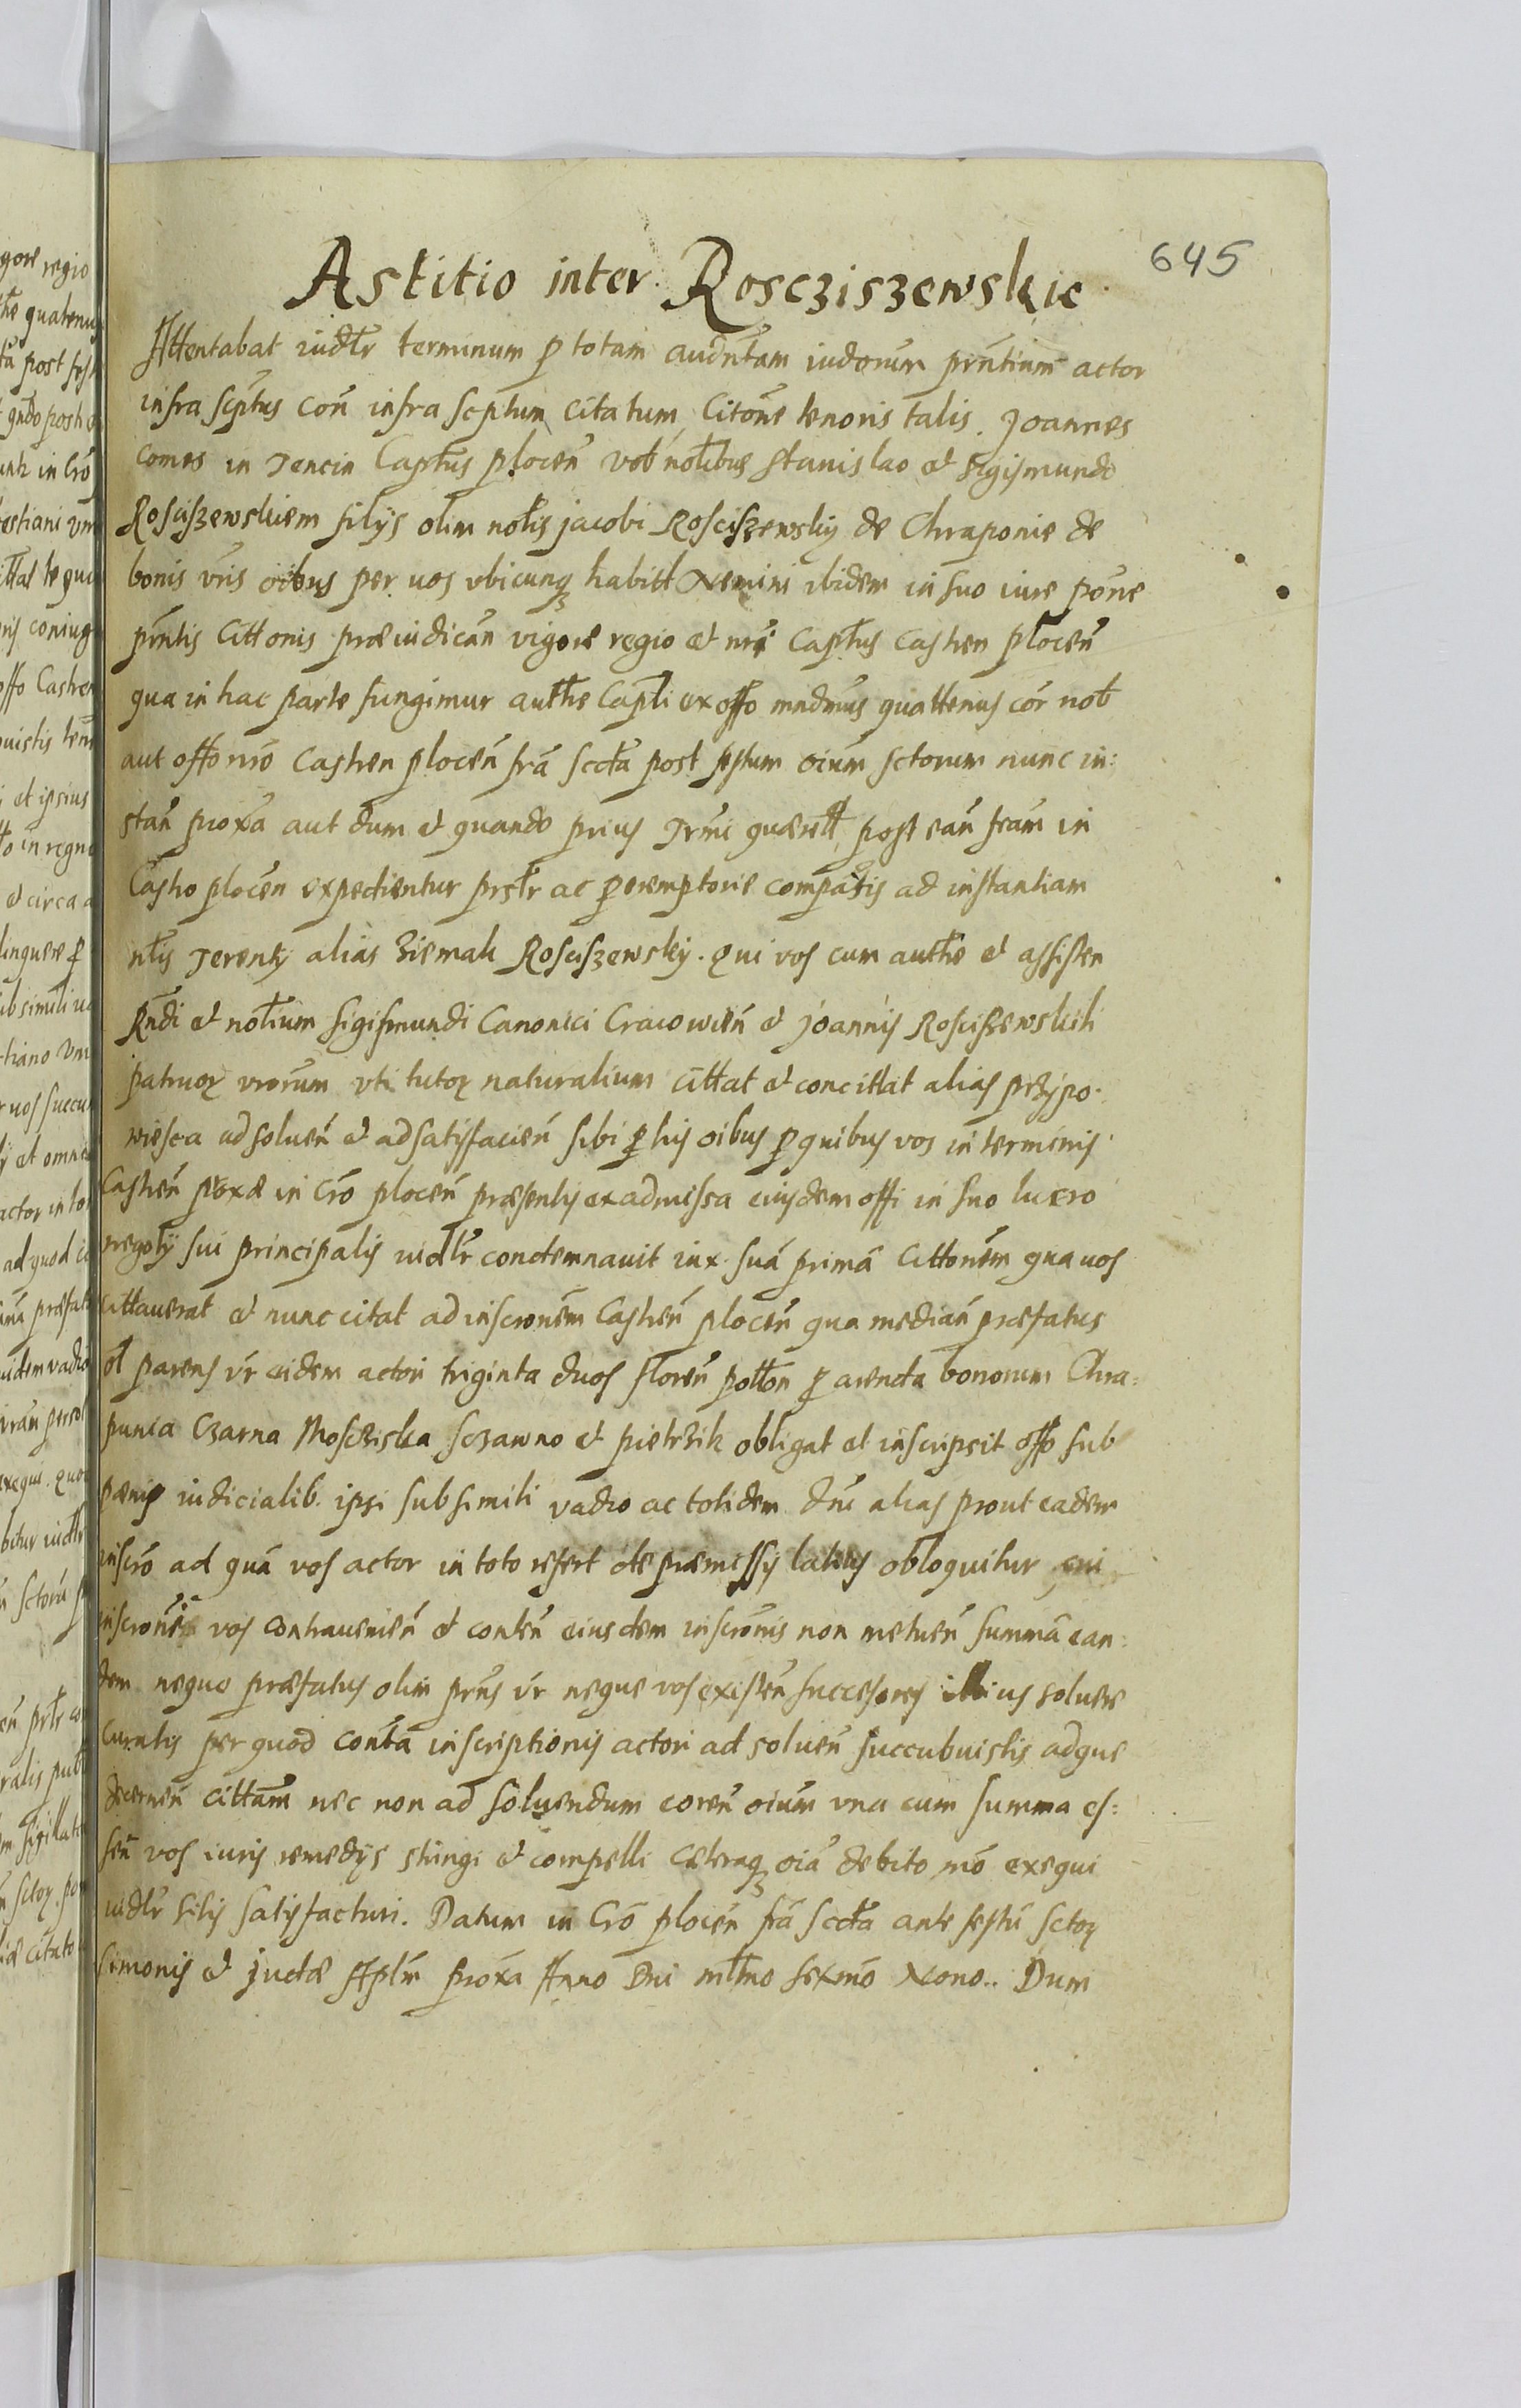 645
Astitio inter Rosczizewskie
Attentabat iudłr terminum p totam audntam iudorum prntium actor
infra scptus con infra scptum citatum, Citone tenoris talis. Joannes
Comes in Tencin Captus plocen vob notibus Stanislao et Sigismundo
Rosciszewskiem filijs olim notis Jacobi Rosciszewskij de Chraponie de
bonis vris oibus per uos vbicunq habitt Nemini ibidem in suo iure pone
pntis Cittonis præiudican vigore regio et nro Captus Castren plocen
qua in hac parte fungimur authe Capli ex offo mndmus quattenus cor nob
aut offo nro Castren plocen fra scda post festum oium sctorum nunc in:
stan proxa aut dum et quando prius Trmi quærell post ean fram in
Castro plocen expedientur prstr ac peremptorie compatis ad instantiam
nlis Terentij alias Ziemak Rosciszewskij. Qui vos cum authe et assisten
Rndi et notium Sigismundi Canonici Cracowien et Joannis Rosciszewskich
patruoȝ vrorum vti tutoȝ naturalium cittat et concittat alias przypo.
wiesca ad soluen et ad satisfacien sibi p his oibus p quibus vos in terminis
Castren proxæ in Cro plocen præsentis ex admissa eiusdem offi in suo lucro
negotij sui principalis iudłr condemnauit iux suã primã Cittonem qua uos
cittauerat et nunc citat ad inscronem Castren plocen qua median præfatus
ol parens vr eidem actori triginta duos floren potton p arenda bonorum Chra=
punia Czarna Mosciska sczawno et pietrzik obligat et inscripsit offo sub
pænis iudicialib. ipsi sub simili vadio ac totidem dni alias prout eadem
inscro ad quã vos actor in toto refert de præmissis latius obloquitur cui
inscroni vos contrauenien et conten eiusdem inscronis non metuen summã ean:
dem neque præfatus olim prns vr neque vos existen successores illius soluere
Curatis per quod conta inscriptionis actori ad soluen succubuistis adque
decernen cittam nec non ad soluendum eoren oium vna cum summa es:
sen vos iuris remedijs stringi et compelli cæteraq oiã debito mo exequi
iudłr sitis satisfacturi. Datum in Cro plocen fra scda ante festu sctoȝ
Simonis et Judæ Aplm proxa Anno Dni mlmo sexmo Nono.. Dum